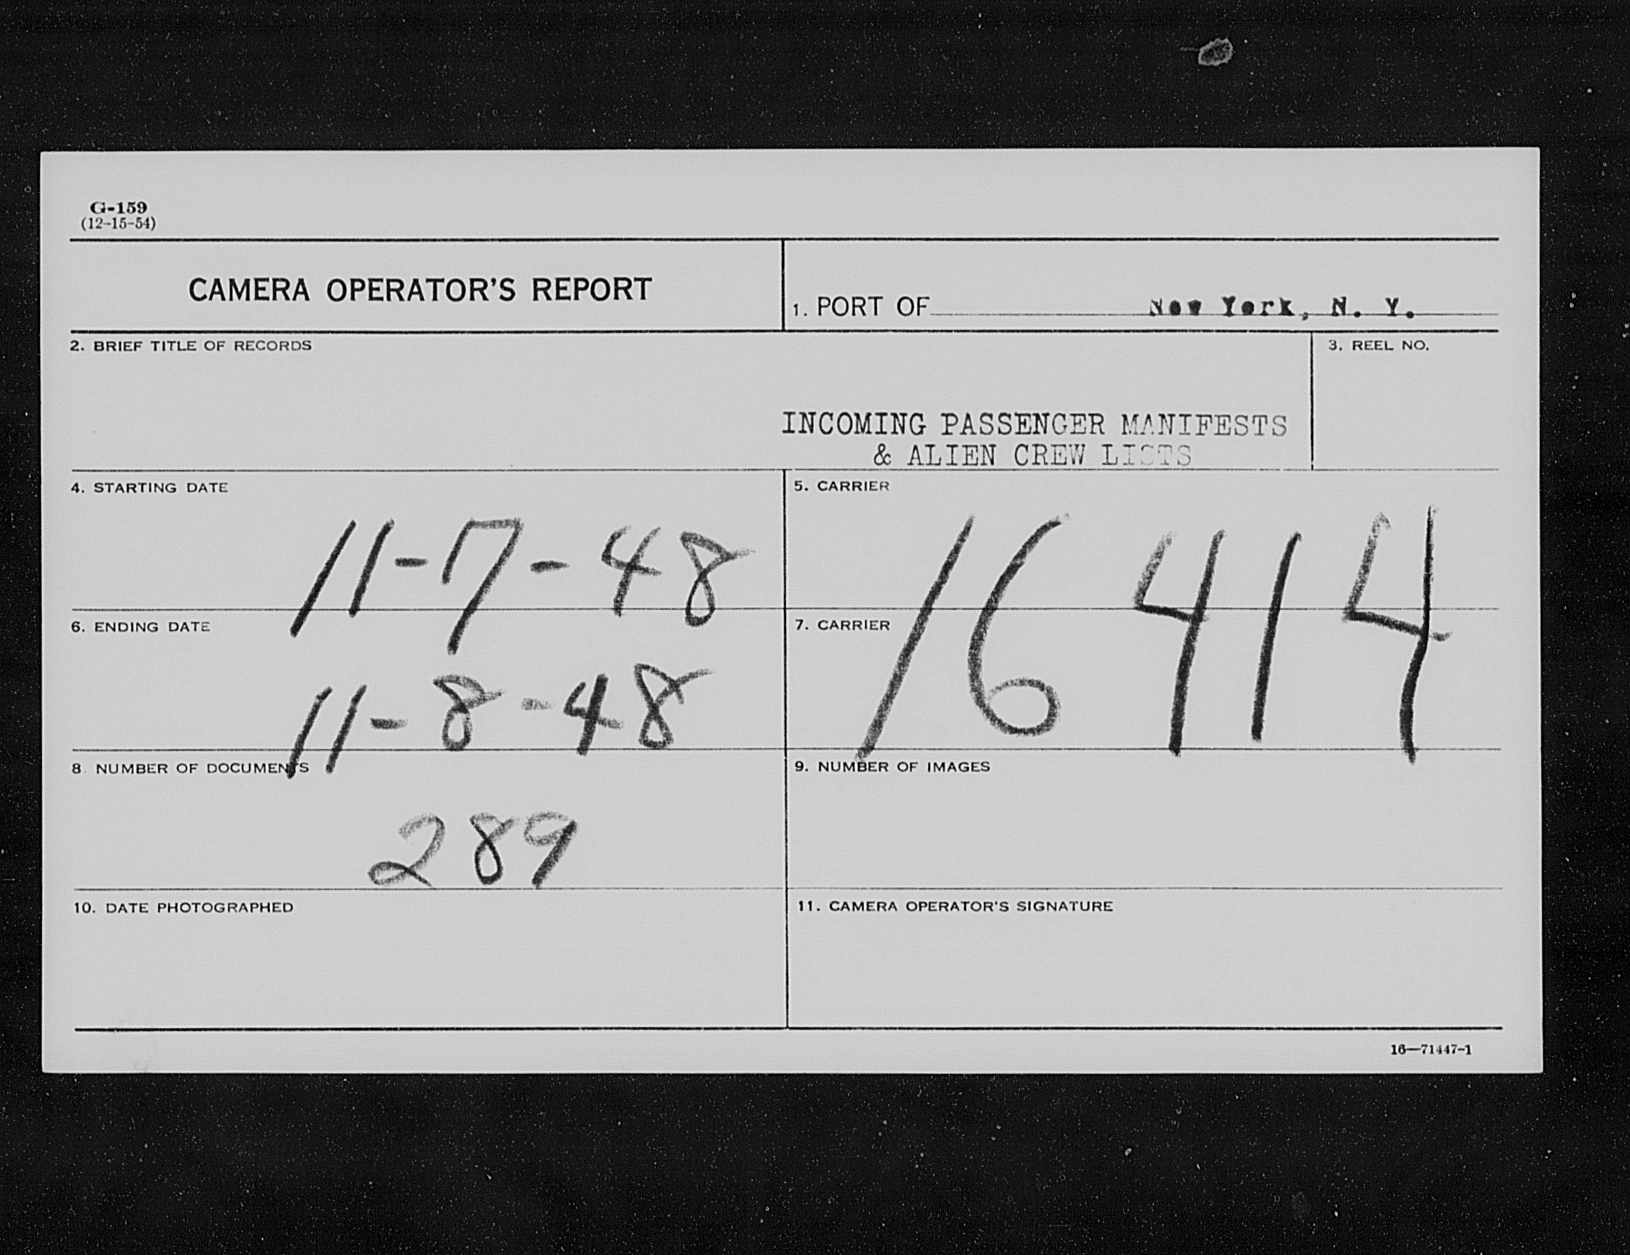 G-159
(12-15-54)
CAMERA OPERATOR'S REPORT
1. PORT OF New York, N. Y.
2. BRIEF TITLE OF RECORDS
3. REEL NO.
INCOMING PASSENGER MANIFESTS
& ALIEN CREW LISTS
4. STARTING DATE
5. CARRIER
11-7-48
16414
6. ENDING DATE
7. CARRIER
11-8-48
8. NUMBER OF DOCUMENTS
9. NUMBER OF IMAGES
289
10. DATE PHOTOGRAPHED
11. CAMERA OPERATOR'S SIGNATURE
16—71447-1